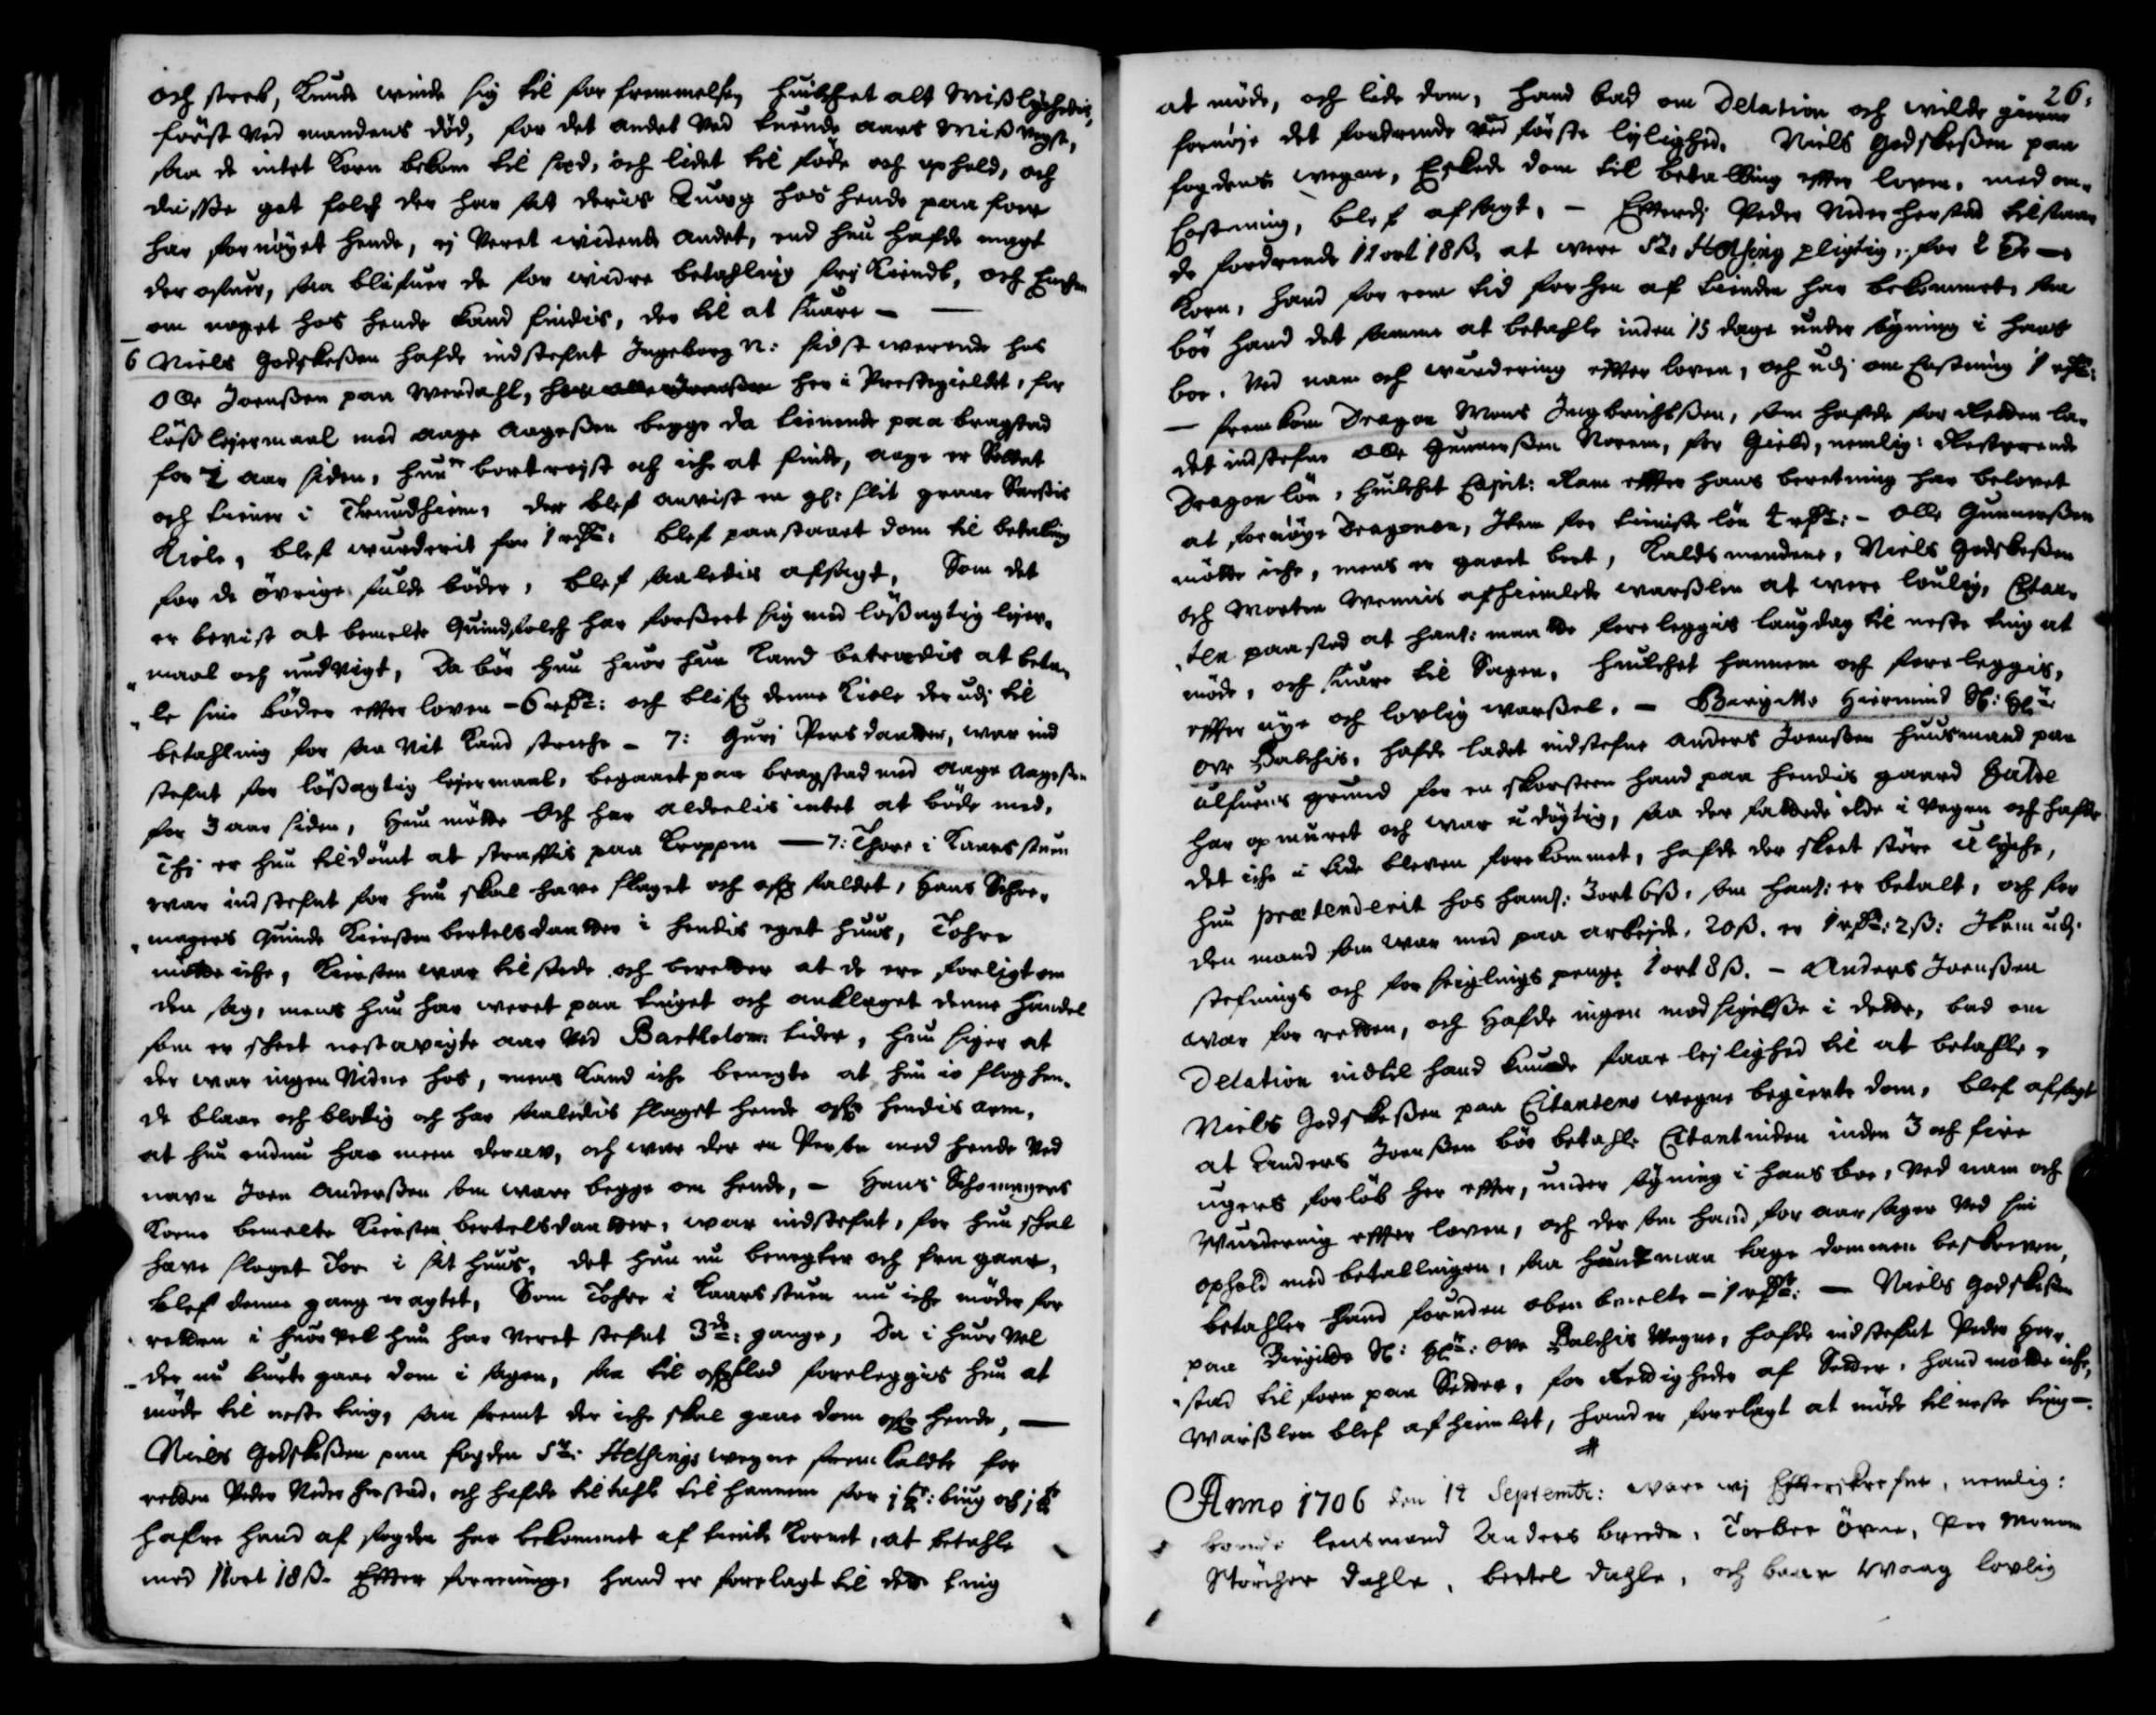 och streb, Kunde winde sig til forfremmelse, huilchet alt Mißlychedis,
först ved mandens död, for det andet ved tuende aars Mißvegst,
saa de intet Korn bekom til sæd, och lidet til föde och ophold, och
disse got folch der har sat deris Quæg hos hende paa foer
har fornöyet hende, ej veret widende andet, end hun hafde magt
der ofuer, saa blifuer de for widre betahling frj Kiendt, och
om noget hos hende kand findis, der til at suare -
6 Niels Godskeßen hafde indstefnt Ingeborg N: sidst werende hos
Olle Joenßen paa Werdahl, her i Prestegieldet, for
lößlejermaal med Aage Aageßen begge da tienende paa bragstad
for 2 aar siden, hun er bortrejst och iche at finde, Aage er Soldat
och tiener i Trundhiem, der blef anvist en gl: slit graae
Kiole, blef wurderit for 1 rdr. blef paastaaet dom til betaling
for de övrige fulde böder, blef saaledis afsagt, Som det
er bevist at bemelte Quindfolch har forseet sig med lößagtig lejer-
maal och undvigt, Da bör hun huor hun kand betrædis at beta-
le sine böder efter loven - 6 rdr: och blifr denne Kiole der udj til
betahling for saa vit kand streche - 7: Guri Persdaatter, war ind
stefnt for lößagtig lejermaal, begaaet paa bragstad med Aage Aageßen
for 3 aar siden, Hun mötte Och har alderlis intet at böde med,
Thj er hun tildömt at straffis paa Kroppen - 7: Thore i Kaarsstuen
war indstefnt for hun skal have slaget och ofr faldet, Hans Schoe-
magers Quinde Kiersten bertelsdaatter i hendis eget huus, Tohre
mötte iche, Kiersten war tilstede och beretter at de ere forligt om
den sag, mens hun har weret paa tinget och anklaget denne handel
som er skeet nestavigte aar ved Bartholom: tider, hun siger at
der war ingen Vidne hos, mens kand iche benegte at hun jo slog hen-
de blaae och blodig och har saaledis slaget hende ofr hendis arm,
at hun endnu har meen derav, och war der en Perso med hende ved
navn Joen Anderßen som ware begge om hende, - Hans Schomagers
Kone bemelte Kiersten bertelsdaatter, war indstefnt, for hun skal
have slaget Tor i sit huus, det hun nu benegter och fra gaar,
blef denne gang eragtet, Som Tohre i Kaarsstuen nu iche möder for
retten i huorvel hun har veret stefnt 3de: gange, Da i huor vel
der nu burte gaae dom i sagen, saa til ofrflod foreleggis hun at
möde til neste ting, saa fremt der iche skal gaae dom ofr hende, -
Niels Godskeßen paa fogden Sr: Helsings wegne frem kaldte for
retten Peder Nider herstad, och hafde tiltahle til hannem for 1 tr: biug och 1 tr
hafre hand af fogden har bekommet af tiende Kornet, at betahle
med 11 ort 18 ß. Efter forening, hand er forelagt til dette ting
26.
at möde, och lide dom, hand bad om Delation och wilde gierne
fornöje det fordrende ved förste lejlighed. Niels Godskeßen paa
fogdens wegne, Eskede dom til betalling efter loven, med om-
kostning, blef afsagt, - Efterdj Peder Nider herstad tilstaar
de fordrende 11 ort 18 ß, at were Sr. Helsing pligtig, for 2 Tr -
Korn, hand for rom tid forhen af tienden har bekommet, saa
bör hand det samme at betahle inden 15 dage under syning i hans
boe, ved nam och wurdering efter loven, och udj omkostning 1 rdr:
- fremkom Dragon Mons Ingbrichtßen, som hafde for Retten la-
det indstefne Olle Gunnerßen Norem, for Gield, nemlig: Resterende
Dragon lön, huilchet Capit: Ram efter hans beretning har belovet
at fornöye Dragonen, Item for tieniste lön 4 rdr: - Olle Gunnerßen
mötte iche, mens er gaaet bort, Kalds mendene, Niels Godskeßen
och Morten Wennis afhiemlede warßlen at were loulig, Citan-
ten paastod at hans: maatte fore leggis laugdag til neste ting at
möde, och suare til Sagen, huilchet hannem och foreleggis,
efter nye och lovlig warßel. - Bergitte Hiermind Sl: Hr:
Ove Balchis, hafde ladet indstefne Anders Joenßen huusmand paa
alfuens grund for en skorsteen hand paa hendis gaard Galve
har opmuret och war udygtig, saa der fattede ilde i veggen och hafde
det iche i tide bleven forekommet, hafde der skeet störe ulyche,
hun prætenderit hos hans: 3 ort 6 ß, som hans: er betalt, och for
den mand som war med paa arbejde, 20 ß. er 1 rdr: 2 ß: Item udj
stefnings och forseiglings penge 1 ort 8 ß. - Anders Joenßen
war for retten, och Hafde ingen modsigelße i dette, bad om
Delation indtil hand kunde faae lejlighed til at betahle,
Niels Godskeßen paa Citantens wegne begierte dom, blef afsagt
at Anders Joenßen bör betahle Citantinden inden 3 och fire
ugers forlöb her efter, under syning i hans boe, ved nam och
Wurdering efter loven, och der som hand for aarsager ved sin
ophold med betallingen, saa hun maa tage dommen beskreven,
betahler hand foruden oben bemelte - 1 rdr: - Niels Godskeßen
paa Bergitte Sl: Hr: Ove Balchis Wegne, hafde indstefnt Peder Her-
stad til forn paa Setter, for Rettigheder af Setter, hand mötte iche,
Warßlen blef afhiemlet, hand er forelagt at möde til neste ting -.
Anno 1706 den 12 Septembr: ware wj Efterskrefne, nemlig:
bonde lensmand Anders breede, Torber Övne, Per Monom
Störcher Dahle, bertel Dahle, och baar Waag lovlig